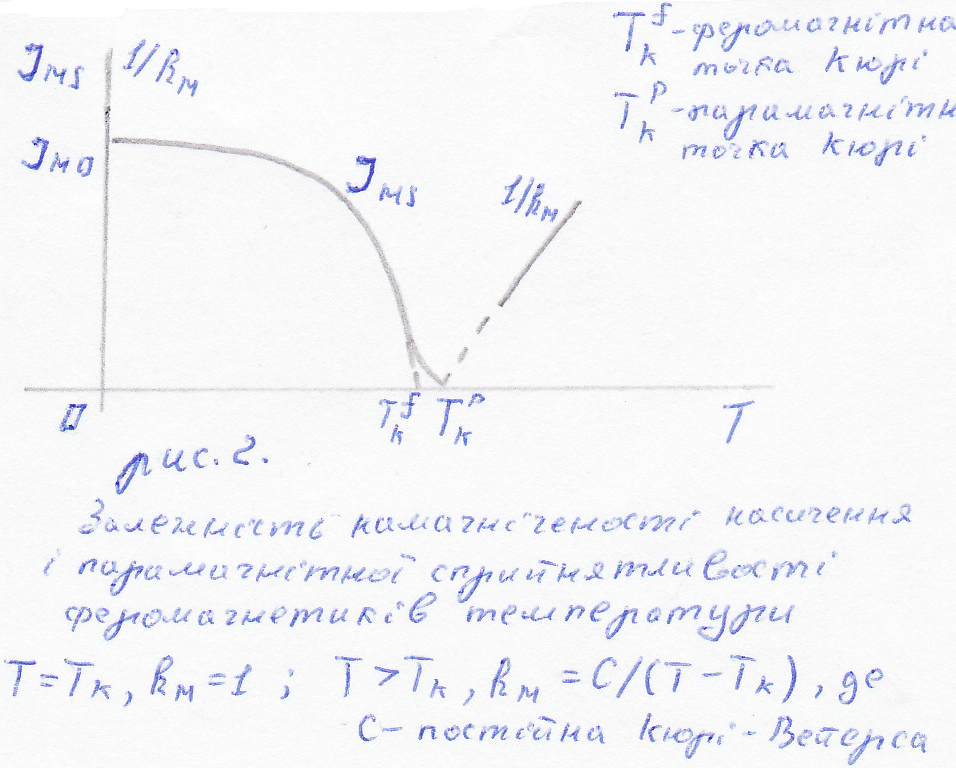 J_MS 1/k_M
T_k^f - феромагнітна
точка Кюрі
T_k^p - парамагнітн
точка Кюрі
J_MO
J_MS
1/k_M
0
T_k^f T_k^p
T
рис. 2.
Залежність намагніченості насичення
і парамагнітної сприйнятливості
феромагнетиків температури
T=T_k, k_M=1 ; T>T_k, k_M=C/(T-T_k), де
C- постійна Кюрі-Вейерса